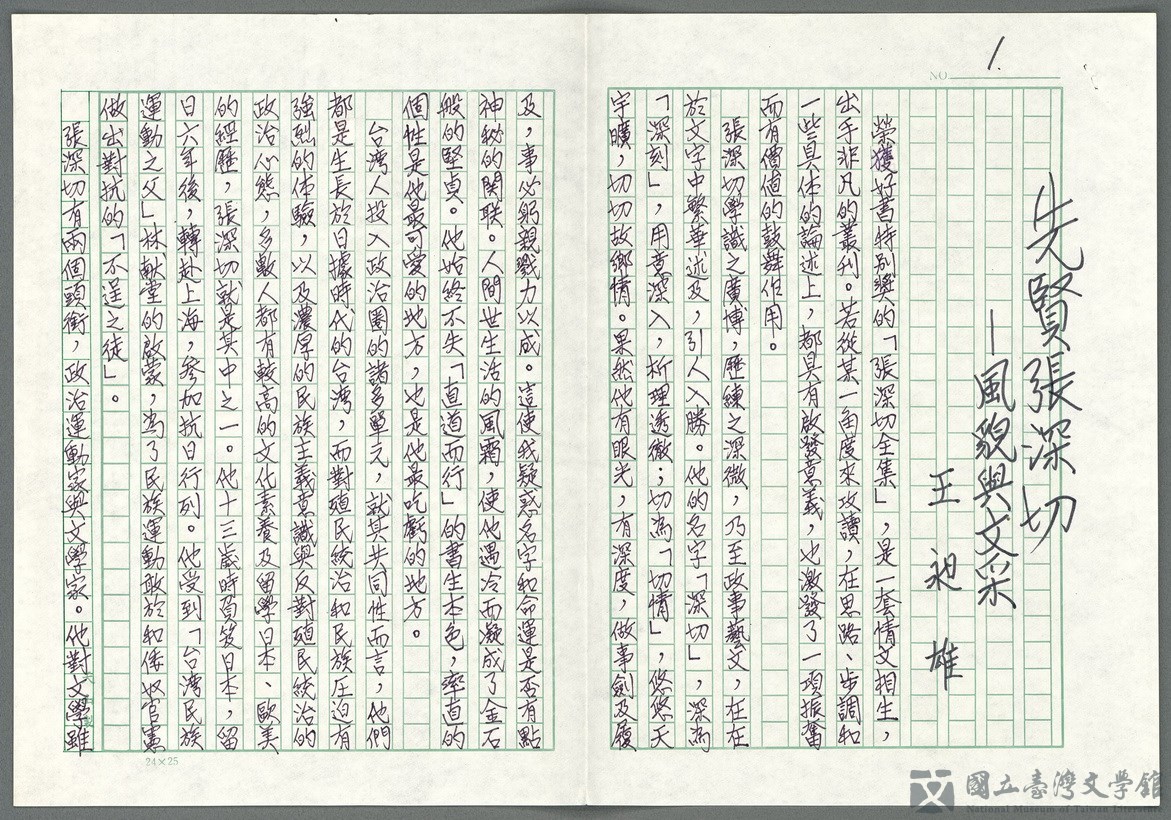 1.
NO.
先賢張深切
—風貌與文采
王昶雄
榮獲好書特別獎的「張深切全集」，是一套情文相生，
出手非凡的叢刊。若從某一角度來攻讀，在思路、步調和
一些具体的論述上，都具有啟發意義，也激發了一項振奮
而有價值的鼓舞作用。
張深切學識之廣博，歷練之深微，乃至政事藝文，在在
於文字中繁華述及，引人入勝。他的名字「深切」，深為
「深刻」，用意深入，析理透徹；切為「切情」，悠悠天
宇曠，切切故鄉情。果然他有眼光，有深度，做事劍及履
及，事必躬親戮力以成。這使我疑惑名字和命運是否有點
神秘的関联。人間世生活的風霜，使他遇冷而凝成了金石
般的堅貞。他始終不失「直道而行」的書生本色，率直的
個性是他最可愛的地方，也是他最吃虧的地方。
台灣人投入政治圈的諸多單元，就其共同性而言，他們
都是生長於日據時代的台灣，而對殖民統治和民族压迫有
強烈的体驗，以及濃厚的民族主義意識與反對殖民統治的
政治心態，多數人都有較高的文化素養及留學日本、歐美
的經歷，張深切就是其中之一。他十三歲時負笈日本，留
日六年後，轉赴上海，參加抗日行列。他受到「台灣民族
運動之父」林献堂的啟蒙，為了民族運動敢於和倭奴官憲
做出對抗的「不逞之徒」。
張深切有兩個頭銜，政治運動家與文學家。他對文學雖
24×25
國立臺灣文學館
National Museum of Taiwan Literature